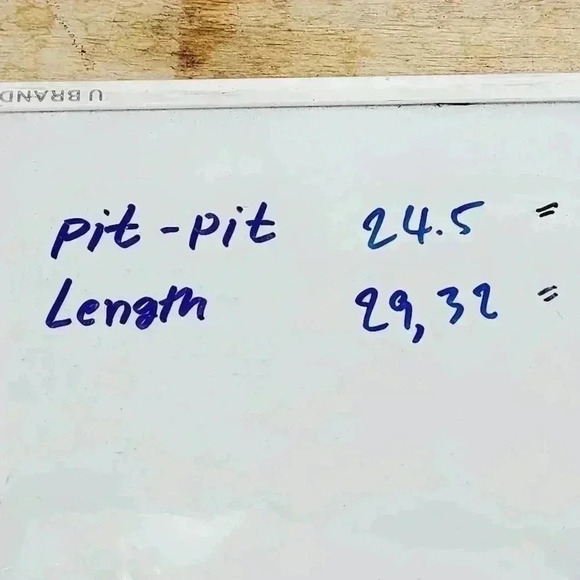 U BRAND
pit - pit 24.5 =
Length 29, 32 =